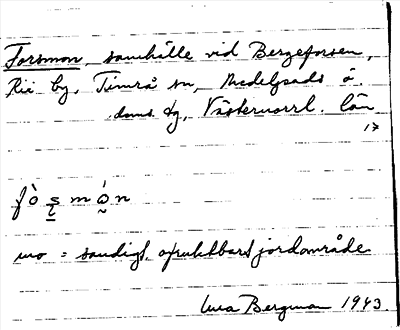 Forsmon, samhälle vid Bergeforsen,
Rii by, Timrå sn, Medelpads ö.
doms. dg, Västernorrl. län
17
fò s̱ m ó̰ n
mo = sandigt, ofruktbart jordområde
Bergman 1943.